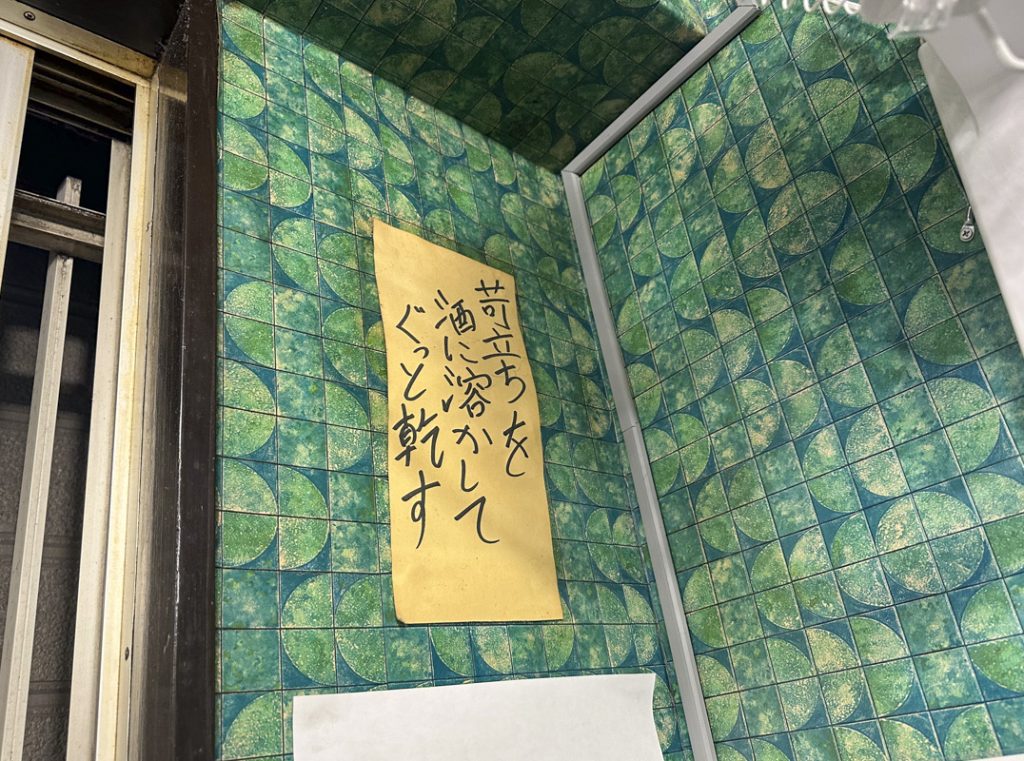 苛立ちを
酒に溶かして
ぐっと乾す